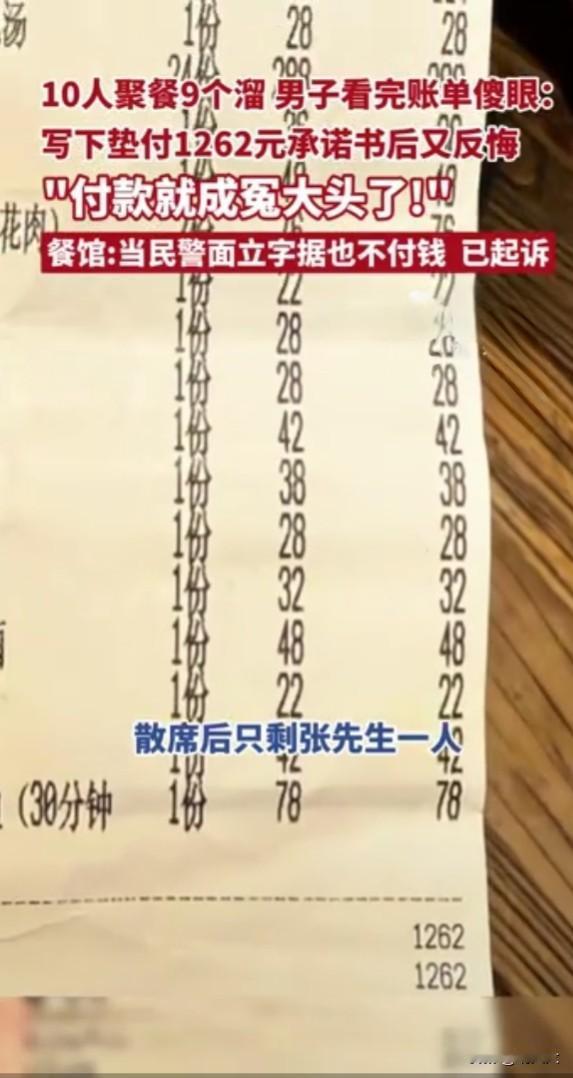 汤 1份 28 28
10人聚餐9个溜 男子看完账单傻眼:
写下垫付1262元承诺书后又反悔
"付款就成冤大头了!"
花肉)
餐馆:当民警面立字据也不付钱 已起诉
1份 22
1份 28 28
1份 28 28
1份 42 42
1份 38 38
1份 28 28
1份 32 32
1份 48 48
1份 22 22
散席后只剩张先生一人
1份 42 42
(30分钟 1份 78 78
1262
1262